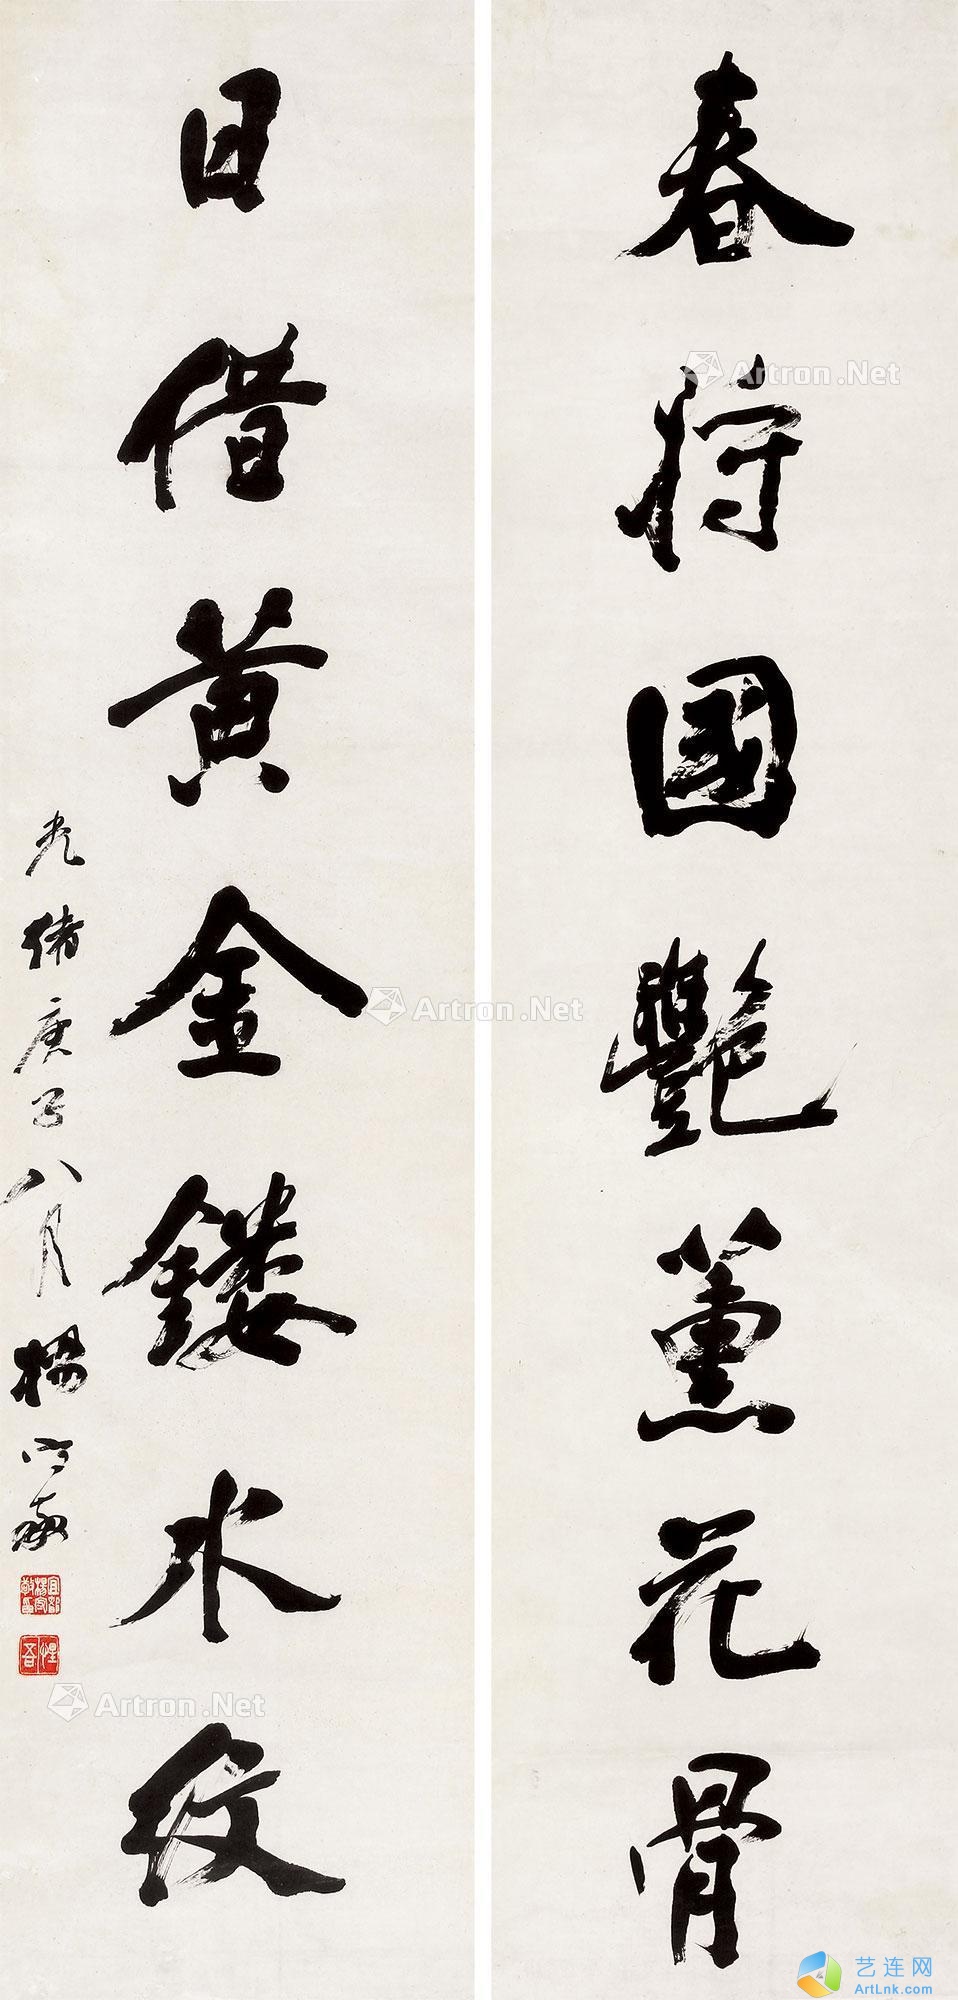 春將國艷薰花骨
日借黃金鏤水紋
光緒庚子八月楊守敬
宜都楊守敬印
惺吾
Artron.Net
Artron.Net
Artron.Net
艺连网
ArtLnk.com